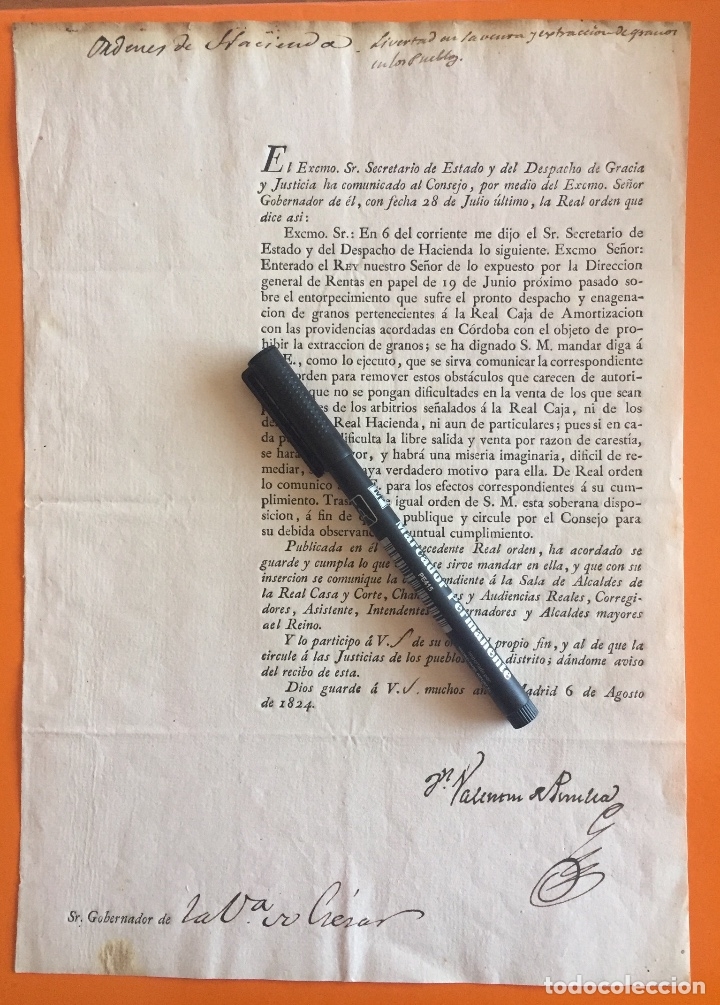 Ordenes de Hacienda. Livertad en la venta y extraccion de granos
en los Pueblos.
El Excmo. Sr. Secretario de Estado y del Despacho de Gracia
y Justicia ha comunicado al Consejo, por medio del Excmo. Señor
Gobernador de él, con fecha 28 de Julio último, la Real orden que
dice asi:
Excmo. Sr.: En 6 del corriente me dijo el Sr. Secretario de
Estado y del Despacho de Hacienda lo siguiente. Excmo Señor:
Enterado el REY nuestro Señor de lo expuesto por la Direccion
general de Rentas en papel de 19 de Junio próximo pasado so-
bre el entorpecimiento que sufre el pronto despacho y enagena-
cion de granos pertenecientes á la Real Caja de Amortizacion
con las providencias acordadas en Córdoba con el objeto de pro-
hibir la extraccion de granos; se ha dignado S. M. mandar diga á
E., como lo ejecuto, que se sirva comunicar la correspondiente
orden para remover estos obstáculos que carecen de autori-
que no se pongan dificultades en la venta de los que sean
es de los arbitrios señalados á la Real Caja, ni de los
de Real Hacienda, ni aun de particulares; pues si en ca-
da p dificulta la libre salida y venta por razon de carestía,
se hará or, y habrá una miseria imaginaria, dificil de re-
mediar, aya verdadero motivo para ella. De Real orden
lo comunico E. para los efectos correspondientes á su cum-
plimiento. Tras igual orden de S. M. esta soberana dispo-
sicion, á fin de publique y circule por el Consejo para
su debida observan untual cumplimiento.
Publicada en él cedente Real orden, ha acordado se
guarde y cumpla lo que se sirve mandar en ella, y que con su
insercion se comunique la pondiente á la Sala de Alcaldes de
la Real Casa y Corte, Chan s y Audiencias Reales, Corregi-
dores, Asistente, Intendente rnadores y Alcaldes mayores
del Reino.
Y lo participo á V. S de su o propio fin, y al de que la
circule á las Justicias de los pueblos distrito; dándome aviso
del recibo de esta.
Dios guarde á V. S. muchos añ Madrid 6 de Agosto
de 1824.
Dn. Valentin de Pinilla
Sr. Gobernador de la Va. de
Marcador Permanente
todocoleccion